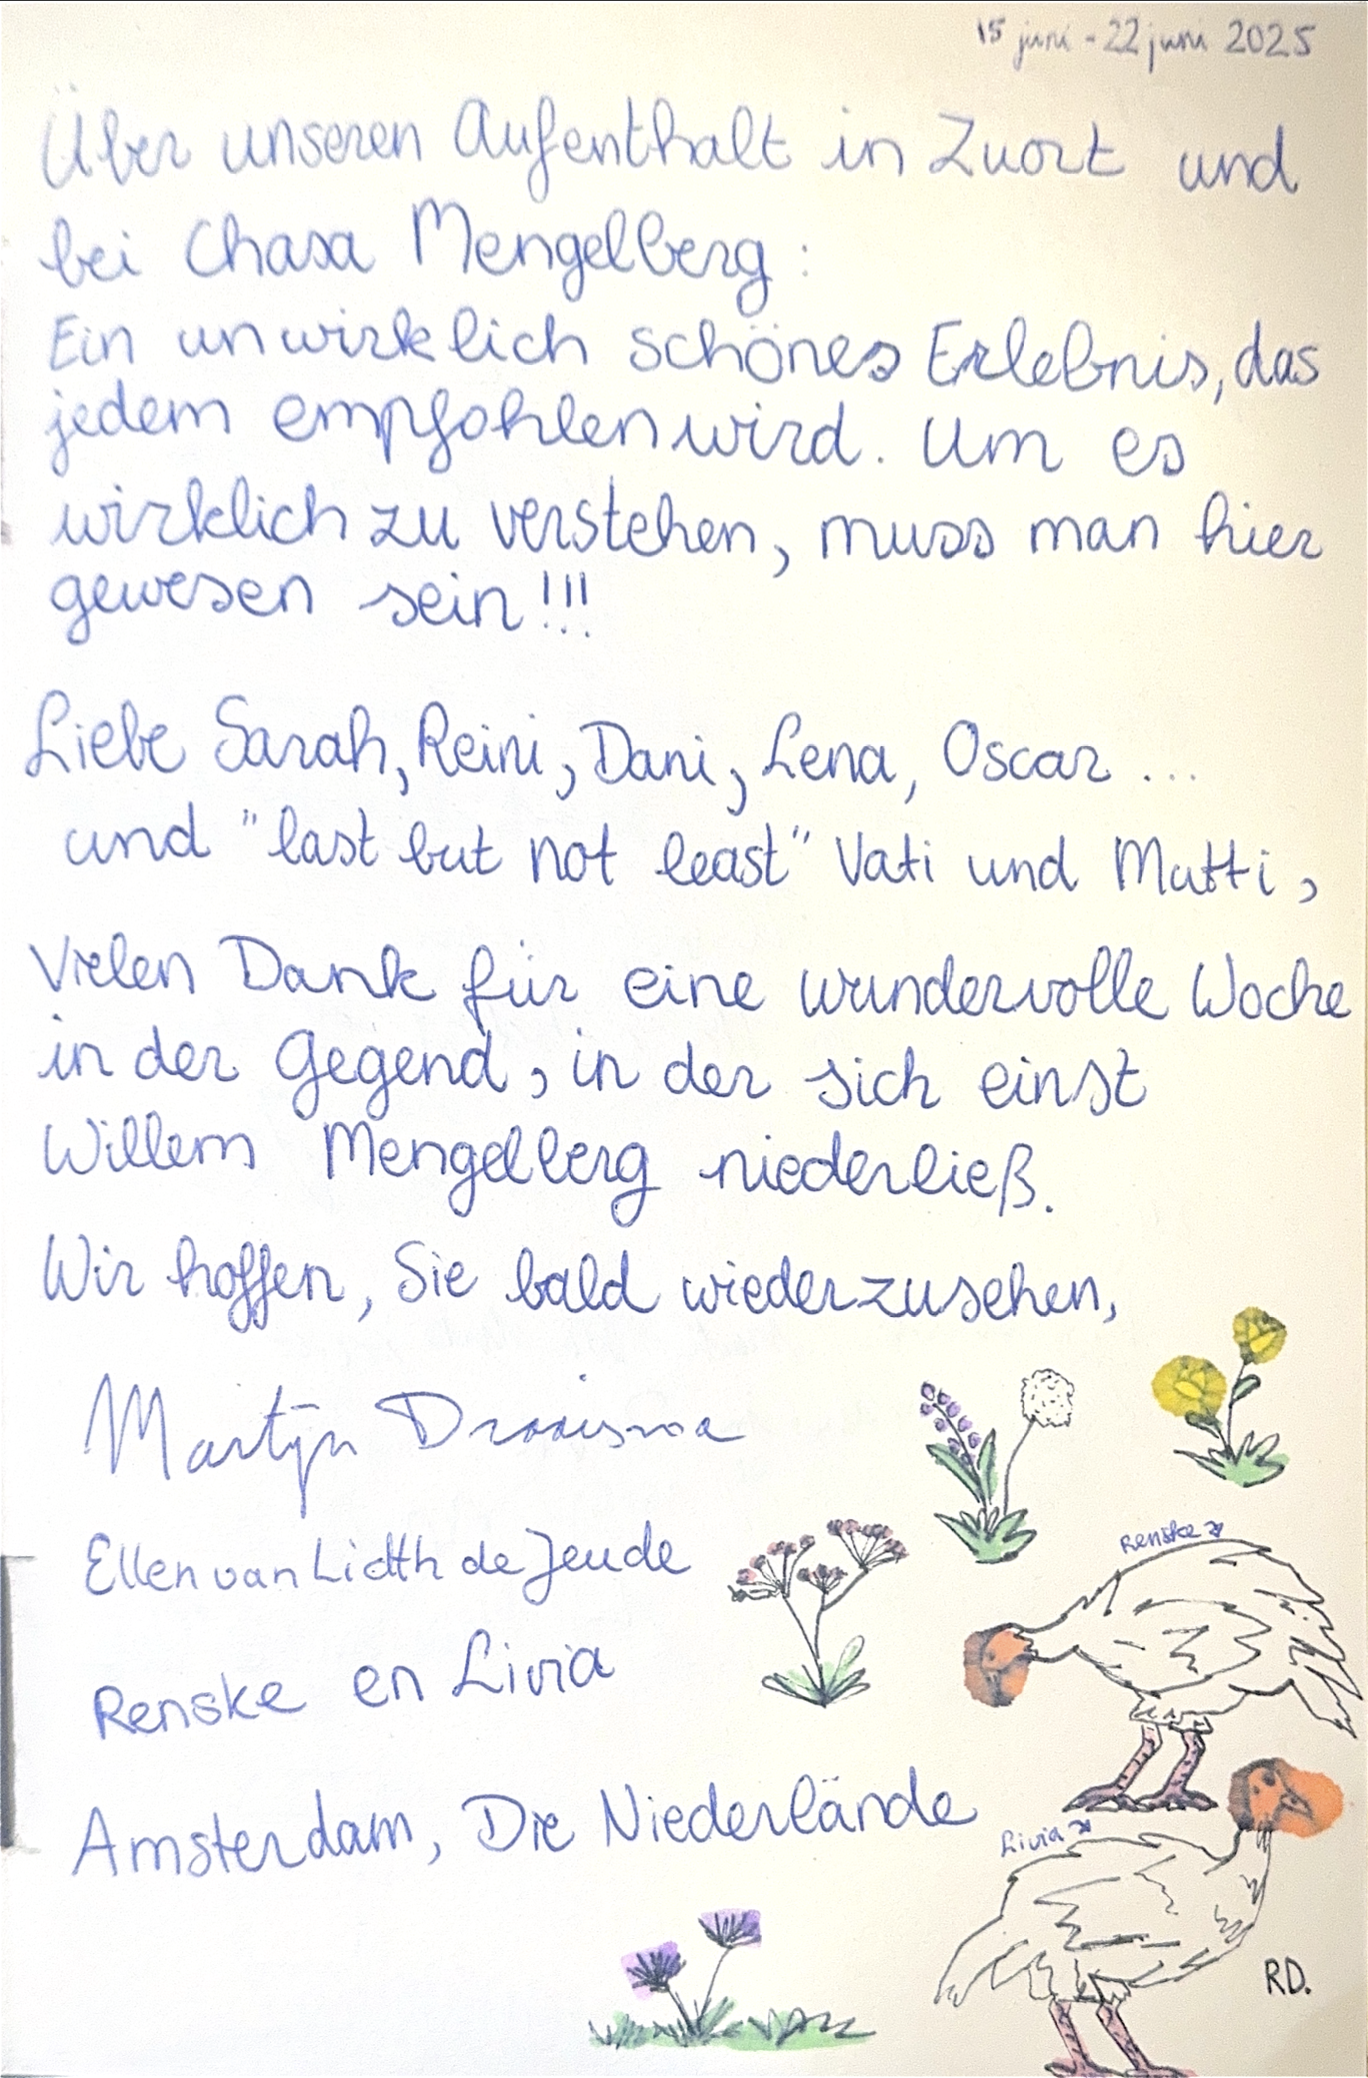 15 juni - 22 juni 2025
Über unseren Aufenthalt in Zuort und
bei Chasa Mengelberg:
Ein unwirklich schönes Erlebnis, das
jedem empfohlen wird. Um es
wirklich zu verstehen, muss man hier
gewesen sein!!!
Liebe Sarah, Reini, Dani, Lena, Oscar ...
und "last but not least" Vati und Mutti,
Vielen Dank für eine wundervolle Woche
in der Gegend, in der sich einst
Willem Mengelberg niederließ.
Wir hoffen, Sie bald wiederzusehen,
Martijn Draaisma
Ellen van Lidth de Jeude
Renske en Livia
Amsterdam, Die Niederlände
Renske
Livia
RD.